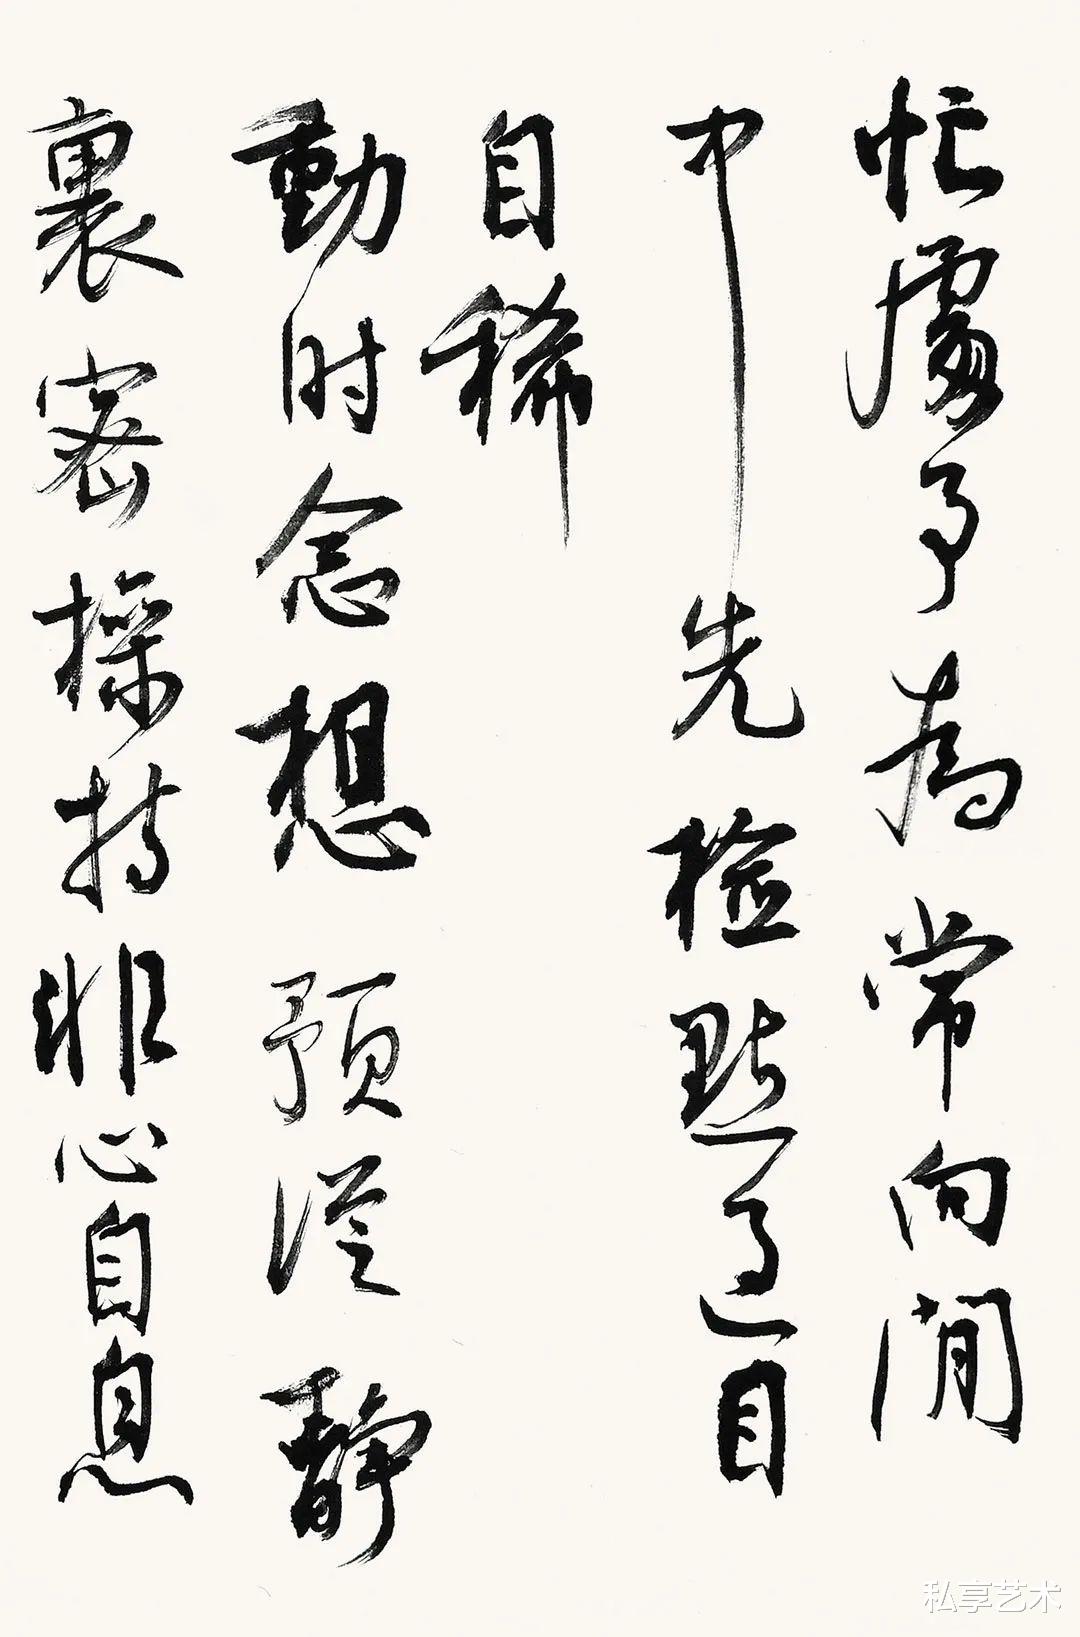 忙處事為常向閒
中先檢點過目
自稀
動时念想預從靜
裏密操持非心自息
私享艺术